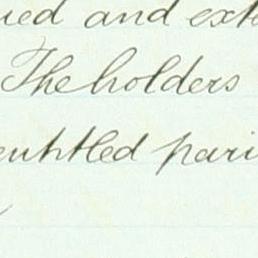 ued and exte
The holders
entitled pari